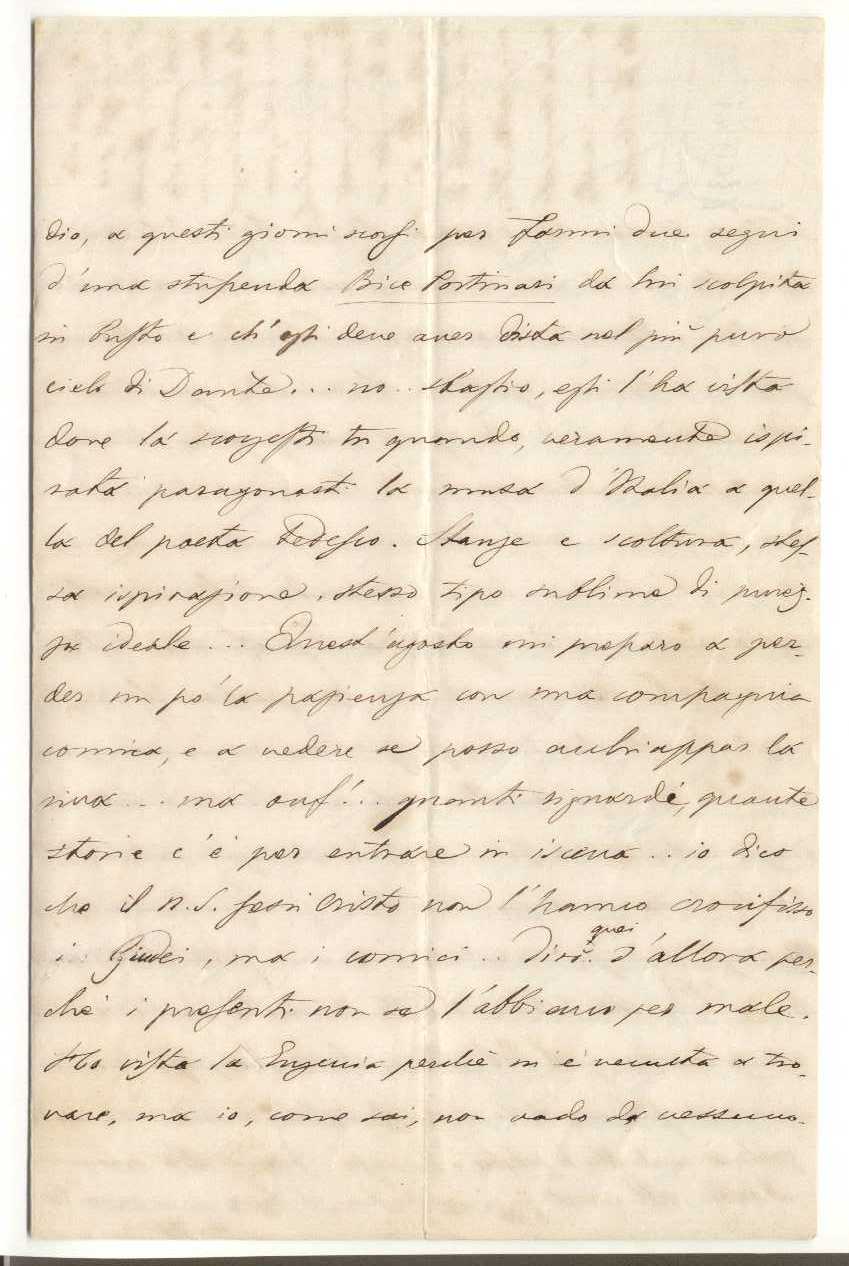 dio, a questi giorni scorsi per farmi due segni
d'una stupenda Bice Portinari da lui scolpita
in busto e ch'egli deve aver vista nel più puro
cielo di Dante... no.. sbaglio, egli l'ha vista
dove la scorgesti tu quando, veramente ispi-
rata paragonasti la musa d'Italia a quel-
la del poeta tedesco. Stanze e scoltura, stes-
sa ispirazione, stesso tipo sublime di purez-
za ideale... Quest'agosto mi preparo a per-
der un pò la pazienza con una compagnia
comica, e a vedere se posso acchiappar la
riva... ma auf!.. quanti riguardi, quante
storie c'è per entrare in iscena.. io dico
che il N. S. Gesù Cristo non l'hanno crocifisso
i Giudei, ma i comici.. dirò quei d'allora per-
chè i presenti non se l'abbiano per male.
Ho vista la Eugenia perchè mi è venuta a tro-
vare, ma io, come sai, non vado da nessuno.